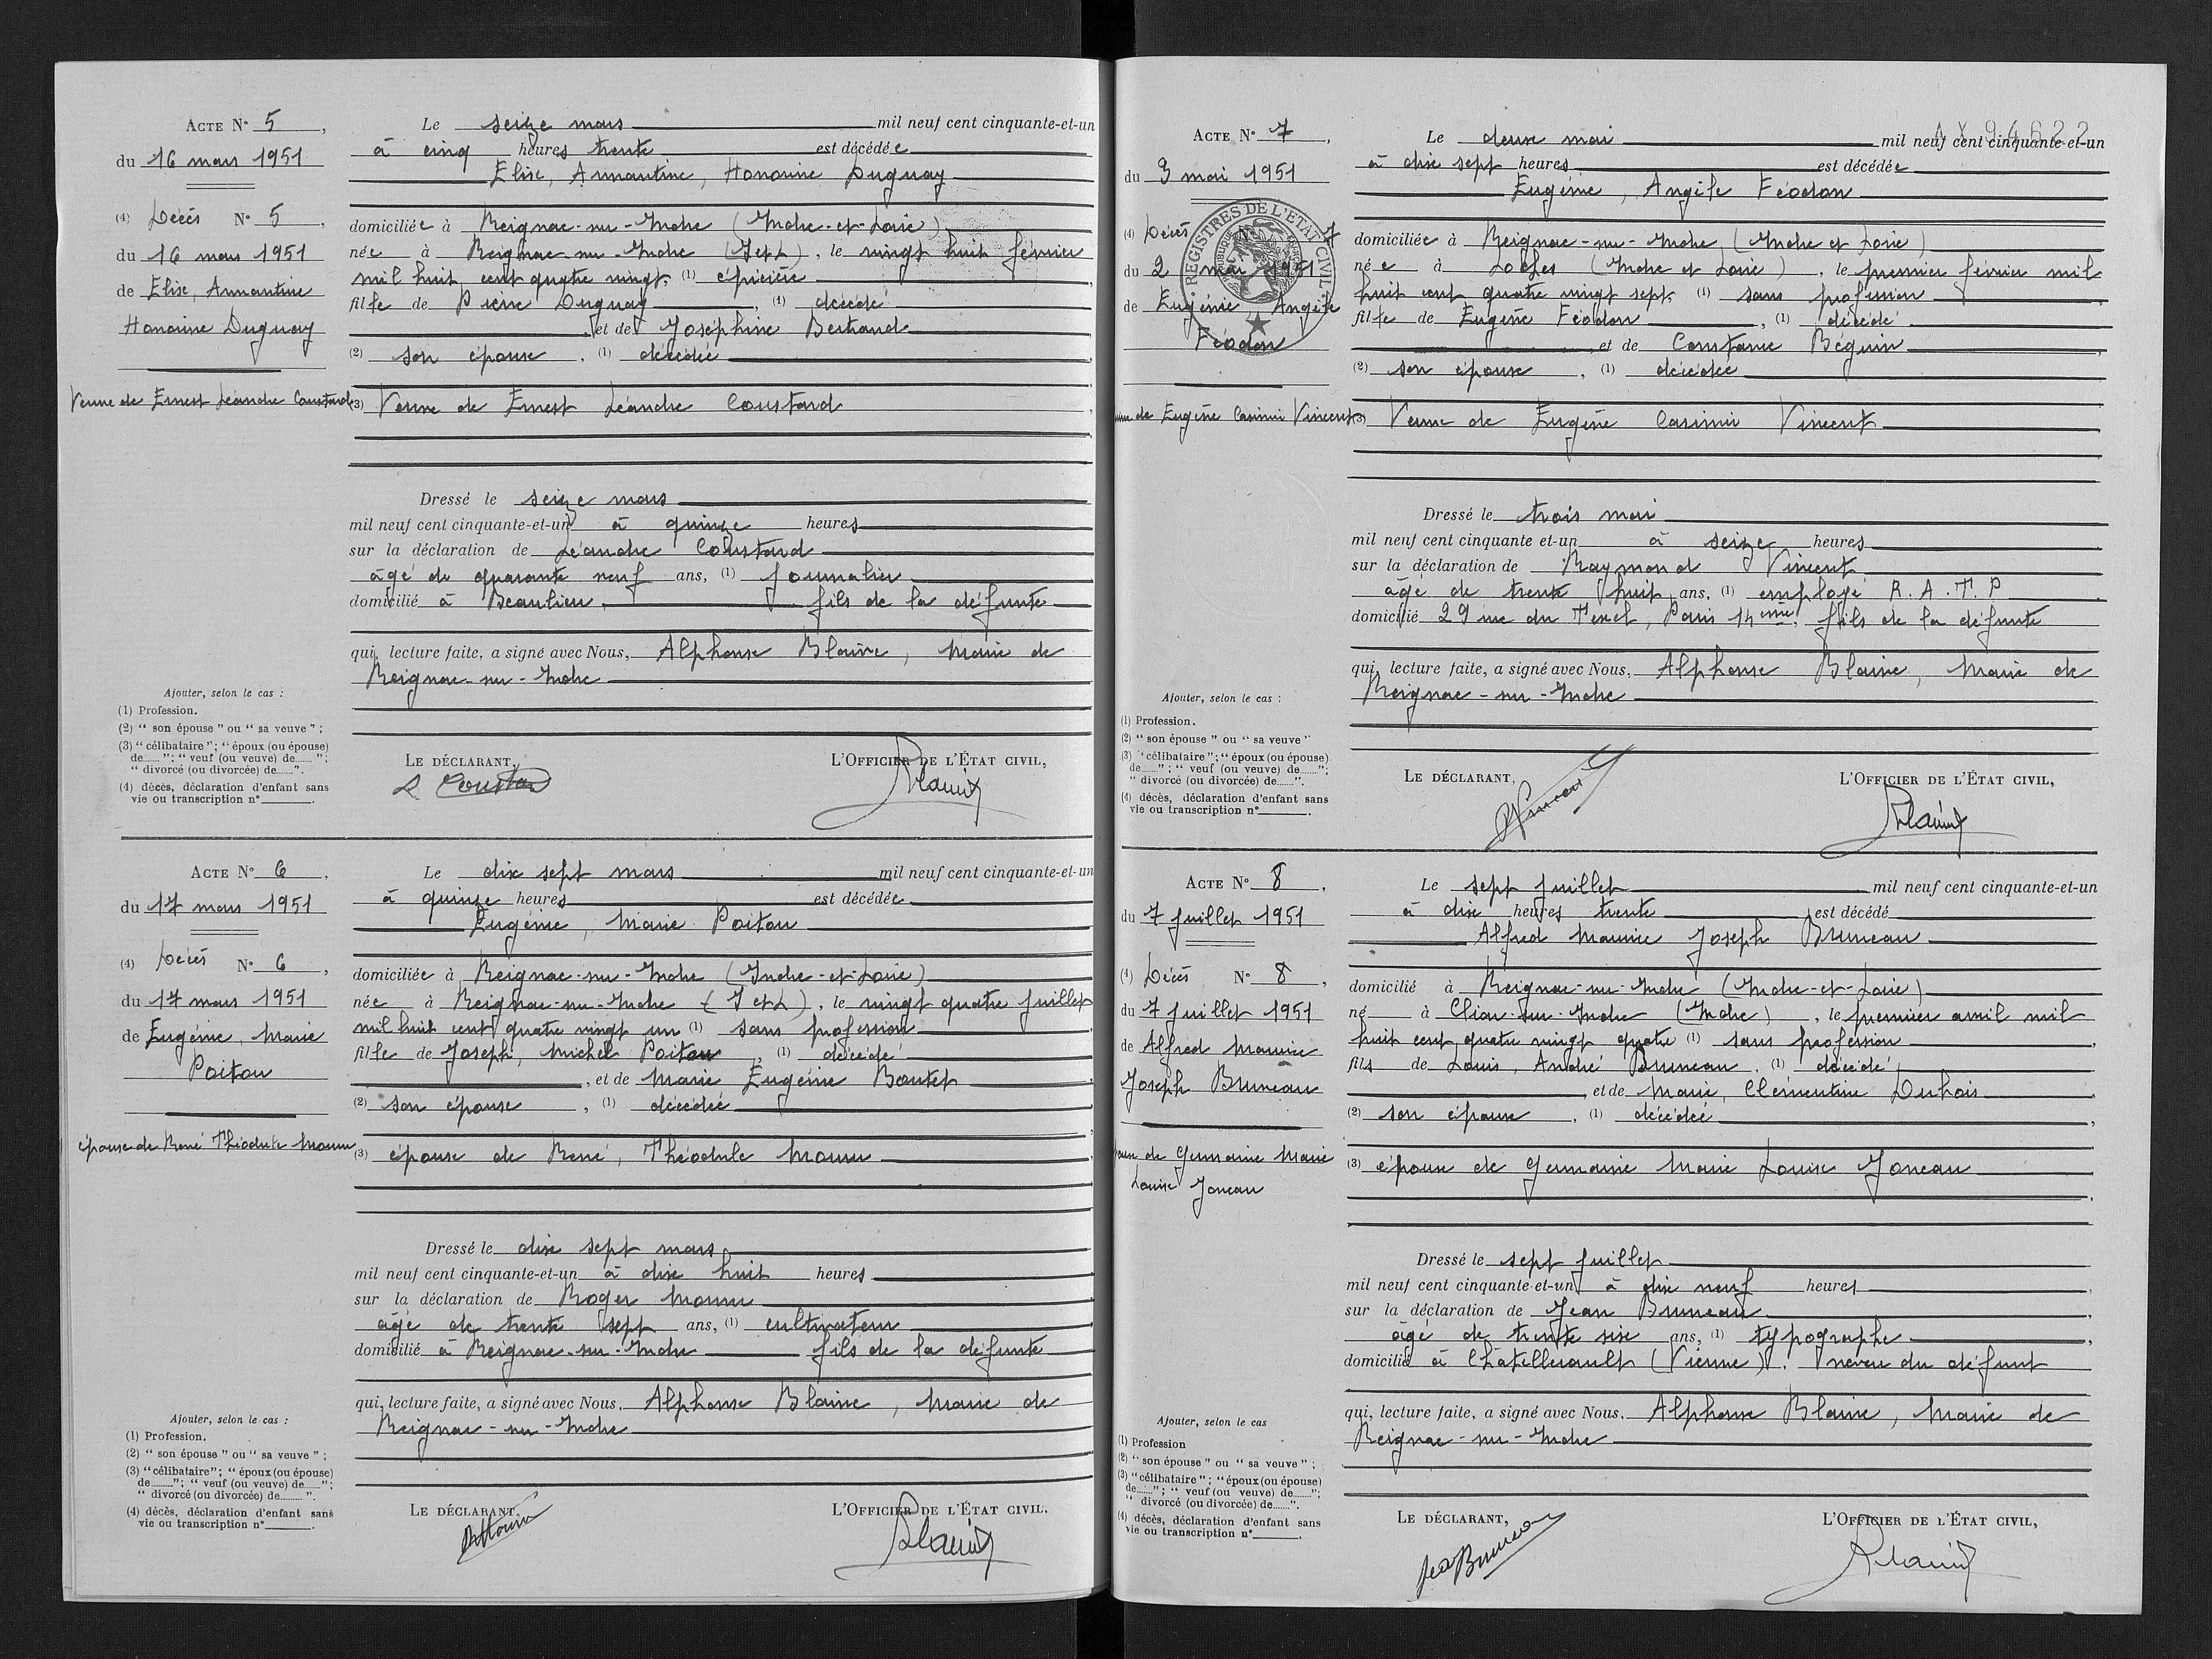 ACTE N° 5,
du 16 mars 1951
(4) Décès N° 5,
du 16 mars 1951
de Elise, Armantine
Honorine Duguay
Veuve de Ernest Léandre Coustard
Le seize mars mil neuf cent cinquante-et-un
à cinq heures trente est décédée
Elise, Armantine, Honorine Duguay
domiciliée à Reignac-sur-Indre (Indre-et-Loire)
née à Reignac-sur-Indre (I et L), le vingt huit février
mil huit cent quatre vingt, (1) épicière
fille de Pierre Duguay, (1) décédé
, et de Joséphine Bertrand
(2) son épouse, (1) décédée
(3) Veuve de Ernest Léandre Coustard
Dressé le seize mars
mil neuf cent cinquante-et-un à quinze heures
sur la déclaration de Léandre Coustard
âgé de quarante neuf ans, (1) journalier
domicilié à Beaulieu, fils de la défunte
qui, lecture faite, a signé avec Nous, Alphonse Blaive, Maire de
Reignac-sur-Indre
Ajouter, selon le cas :
(1) Profession.
(2) “ son épouse ” ou “ sa veuve ” ;
(3) “ célibataire ” ; “ époux (ou épouse)
de...... ” ; “ veuf (ou veuve) de...... ” ;
“ divorcé (ou divorcée) de...... ”.
(4) décès, déclaration d'enfant sans
vie ou transcription n°
LE DÉCLARANT,
L'OFFICIER DE L'ÉTAT CIVIL,
L Coustard
Blaive
ACTE N° 6,
du 17 mars 1951
(4) Décès N° 6,
du 17 mars 1951
de Eugénie, Marie
Poitou
épouse de René Théodule Moum
Le dix sept mars mil neuf cent cinquante-et-un
à quinze heures est décédée
Eugénie, Marie Poitou
domiciliée à Reignac-sur-Indre (Indre-et-Loire)
née à Reignac-sur-Indre (I et L), le vingt quatre juillet
mil huit cent quatre vingt un (1) sans profession
fille de Joseph, Michel Poitou, (1) décédé
, et de Marie Eugénie Boutet
(2) son épouse, (1) décédée
(3) épouse de René, Théodule
Dressé le dix sept mars
mil neuf cent cinquante-et-un à dix huit heures
sur la déclaration de Roger
âgé de trente sept ans, (1) cultivateur
domicilié à Reignac-sur-Indre fils de la défunte
qui, lecture faite, a signé avec Nous, Alphonse Blaive, Maire de
Reignac-sur-Indre
Ajouter, selon le cas :
(1) Profession.
(2) “ son épouse ” ou “ sa veuve ” ;
(3) “ célibataire ” ; “ époux (ou épouse)
de...... ” ; “ veuf (ou veuve) de...... ” ;
“ divorcé (ou divorcée) de...... ”.
(4) décès, déclaration d'enfant sans
vie ou transcription n°
LE DÉCLARANT,
L'OFFICIER DE L'ÉTAT CIVIL,
Blaive
ACTE N° 7,
du 3 mai 1951
(4) Décès N° 7
du 2 mai 1951
de Eugénie Angèle
Féodon
REGISTRES DE L'ETAT CIVIL
de Eugène Casimir Vincent
94622
Le deux mai mil neuf cent cinquante-et-un
à dix sept heures est décédée
Eugénie, Angèle Féodon
domiciliée à Reignac-sur-Indre (Indre et Loire)
née à Loches (Indre et Loire), le premier février mil
huit cent quatre vingt sept, (1) sans profession
fille de Eugène Féodon, (1) décédé
, et de Constance Béguin
(2) son épouse, (1) décédée
(3) Veuve de Eugène Casimir Vincent
Dressé le trois mai
mil neuf cent cinquante et-un à seize heures
sur la déclaration de Raymond Vincent
âgé de trente huit ans, (1) employé R.A.T.P
domicilié 29 rue du Texel, Paris 14ème, fils de la défunte
qui, lecture faite, a signé avec Nous, Alphonse Blaive, Maire de
Reignac-sur-Indre
Ajouter, selon le cas :
(1) Profession.
(2) “ son épouse ” ou “ sa veuve ”
(3) “ célibataire ” ; “ époux (ou épouse)
de...... ” ; “ veuf (ou veuve) de...... ” ;
“ divorcé (ou divorcée) de...... ”.
(4) décès, déclaration d'enfant sans
vie ou transcription n°
LE DÉCLARANT,
L'OFFICIER DE L'ÉTAT CIVIL,
R Vincent
Blaive
ACTE N° 8,
du 7 juillet 1951
(4) Décès N° 8,
du 7 juillet 1951
de Alfred Maurice
Joseph Bruneau
de Germaine Marie
Louise Joneau
Le sept juillet mil neuf cent cinquante-et-un
à dix heures trente est décédé
Alfred Maurice Joseph Bruneau
domicilié à Reignac-sur-Indre (Indre-et-Loire)
né à Clion-sur-Indre (Indre), le premier avril mil
huit cent quatre vingt quatre (1) sans profession
fils de Louis, André Bruneau, (1) décédé
, et de Marie, Clémentine Dubois
(2) son épouse, (1) décédée
(3) époux de Germaine Marie Louise Joneau
Dressé le sept juillet
mil neuf cent cinquante-et-un à dix neuf heures
sur la déclaration de Jean Bruneau
âgé de trente six ans, (1) typographe
domicilié à Châtellerault (Vienne), neveu du défunt
qui, lecture faite, a signé avec Nous, Alphonse Blaive, Maire de
Reignac-sur-Indre
Ajouter, selon le cas
(1) Profession
(2) “ son épouse ” ou “ sa veuve ” ;
(3) “ célibataire ” ; “ époux (ou épouse)
de...... ” ; “ veuf (ou veuve) de...... ” ;
“ divorcé (ou divorcée) de...... ”.
(4) décès, déclaration d'enfant sans
vie ou transcription n°
LE DÉCLARANT,
L'OFFICIER DE L'ÉTAT CIVIL,
Jean Bruneau
Blaive